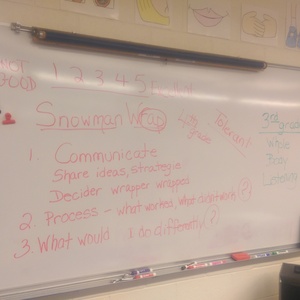 NOT GOOD 1 2 3 4 5
Snowman Wrap 4th grade Tolerant 3rd grade
Whole
Body
Listening
1. Communicate
Share ideas, strategie
Decider wrapper wrapped
2. Process - what worked, what didn't work (?)
3. What would I do differently (?)